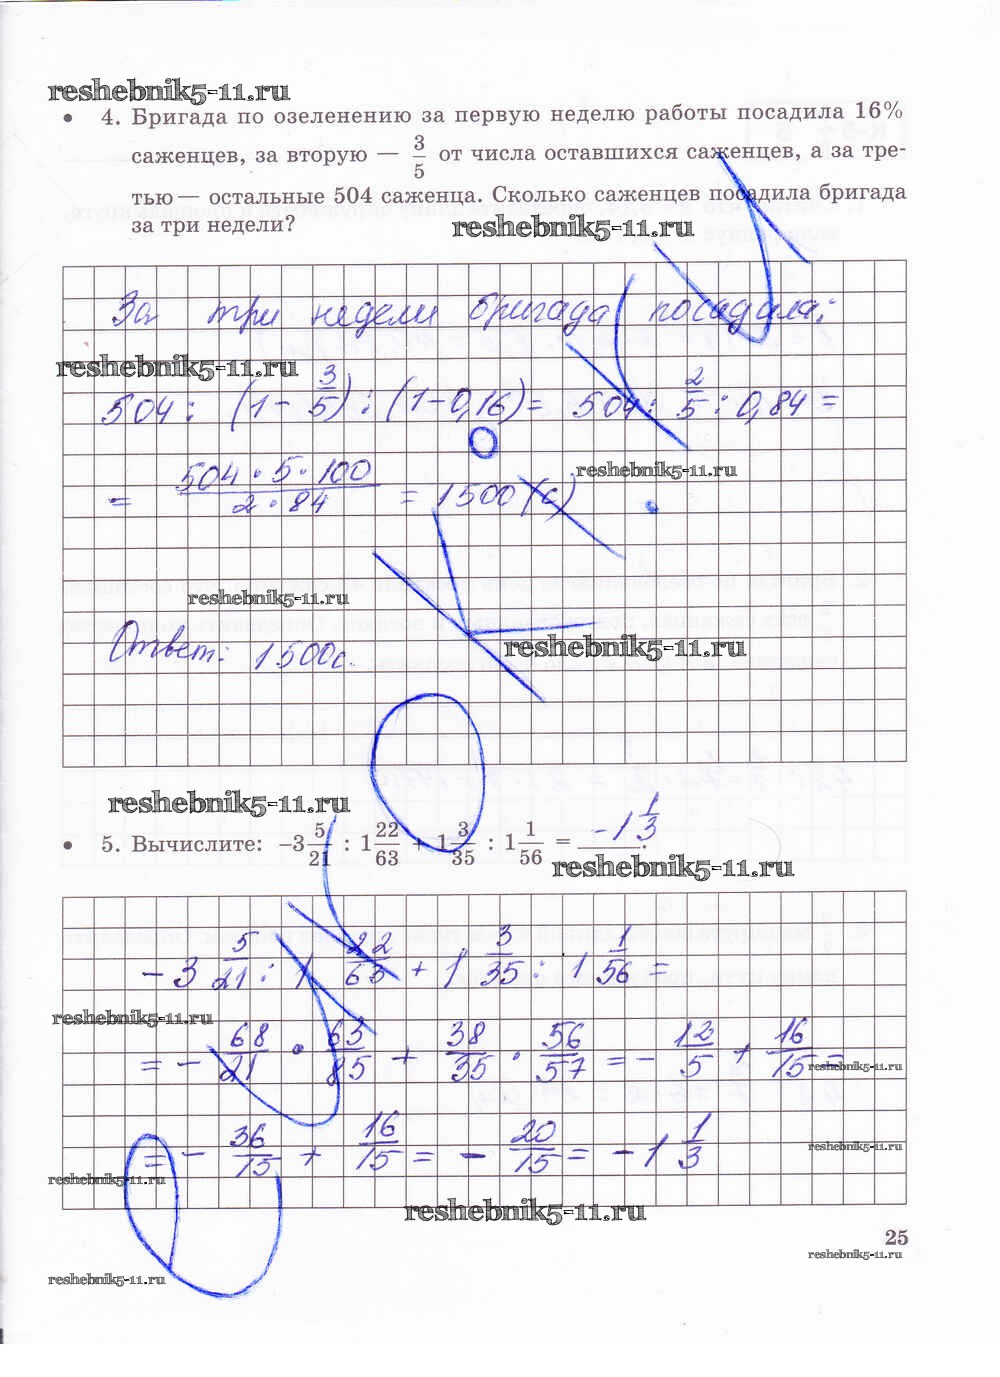 reshebnik5-11.ru
• 4. Бригада по озеленению за первую неделю работы посадила 16%
саженцев, за вторую — 3/5 от числа оставшихся саженцев, а за тре-
тью — остальные 504 саженца. Сколько саженцев посадила бригада
за три недели?
reshebnik5-11.ru
За три недели бригада посадила:
reshebnik5-11.ru
504 : (1 - 3/5) : (1 - 0,16) = 504 : 2/5 : 0,84 =
reshebnik5-11.ru
= 504 · 5 · 100 / 2 · 84 = 1500 (с)
reshebnik5-11.ru
Ответ: 1500с.
reshebnik5-11.ru
reshebnik5-11.ru
• 5. Вычислите: -3 5/21 : 1 22/63 + 1 3/35 : 1 1/56 = -1 1/3.
reshebnik5-11.ru
-3 5/21 : 1 22/63 + 1 3/35 : 1 1/56 =
reshebnik5-11.ru
= - 68/21 · 63/85 + 38/35 · 56/57 = - 12/5 + 16/15 =
reshebnik5-11.ru
= - 36/15 + 16/15 = - 20/15 = -1 1/3
reshebnik5-11.ru
reshebnik5-11.ru
reshebnik5-11.ru
25
reshebnik5-11.ru
reshebnik5-11.ru